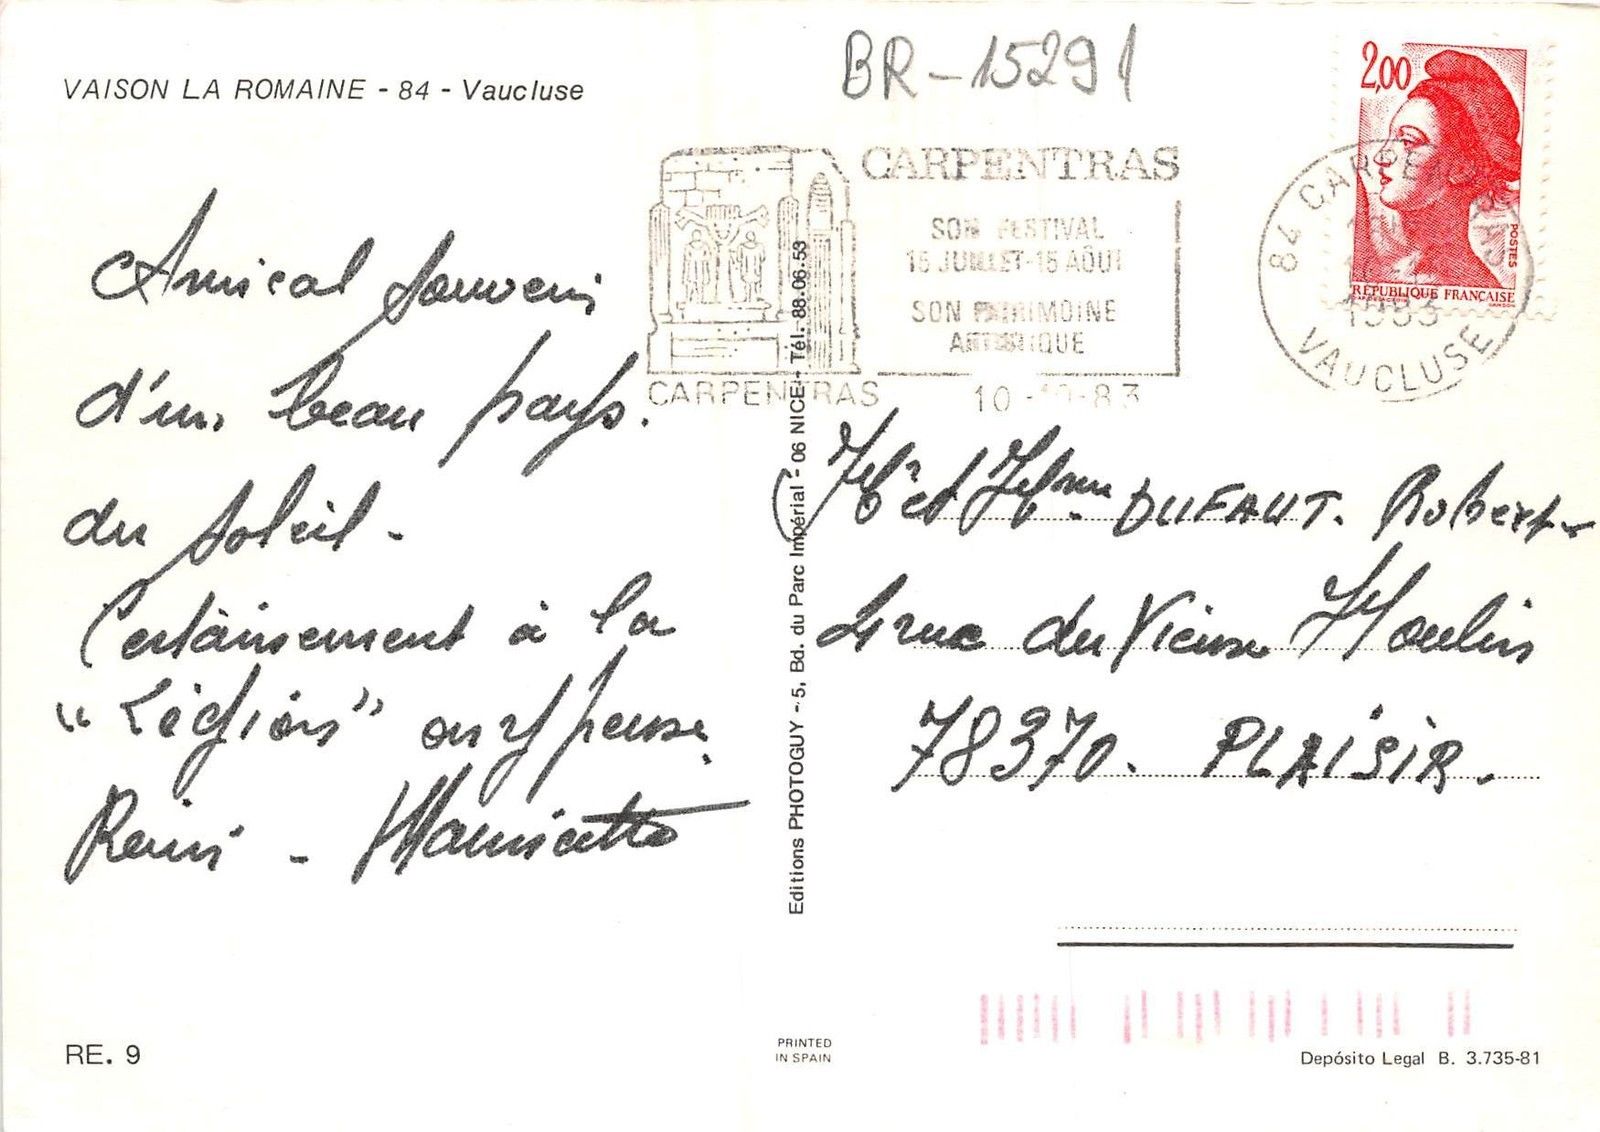 VAISON LA ROMAINE - 84 - Vaucluse
BR-15291
2,00
POSTES
REPUBLIQUE FRANÇAISE
CARPENTRAS
SON FESTIVAL
15 JUILLET-15 AOUT
SON PATRIMOINE
ARTISTIQUE
CARPENTRAS
10-10-83
84 CARPENTRAS
1983
VAUCLUSE
Amical souvenir
d'un beau pays.
du soleil -
Certainement à la
"Légion" on y pense.
Rémi - Mauricette
Mr et Mme DUFAUT. Robert
4 rue du Vieux Moulin
78370. PLAISIR.
Editions PHOTOGUY - 5, Bd. du Parc Impérial - 06 NICE - Tél. 88.06.53
RE. 9
PRINTED
IN SPAIN
Depósito Legal B. 3.735-81